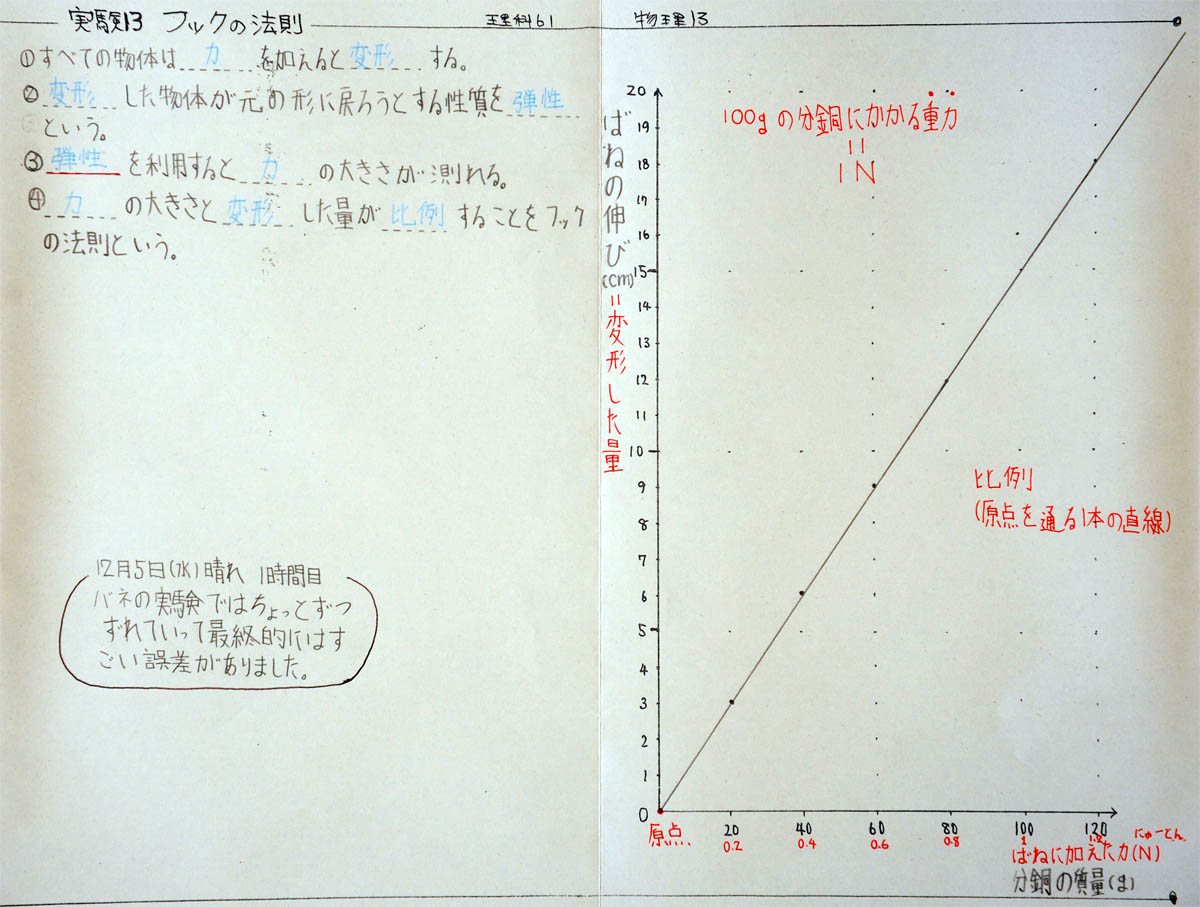 実験13 フックの法則
理科61
①すべての物体は 力 を加えると 変形 する。
② 変形 した物体が元の形に戻ろうとする性質を 弾性
という。
③ 弾性 を利用すると 力 の大きさが測れる。
④ 力 の大きさと 変形 した量が 比例 することをフック
の法則という。
12月5日(水)晴れ 1時間目
バネの実験ではちょっとずつ
ずれていって最終的にはす
ごい誤差がありました。
物理13
100gの分銅にかかる重力
=
1N
ばねの伸び(cm)=変形した量
20
19
18
17
16
15
14
13
12
11
10
9
8
7
6
5
4
3
2
1
0
比例
(原点を通る1本の直線)
原点
20 40 60 80 100 120
0.2 0.4 0.6 0.8 1 1.2
にゅーとん
ばねに加えた力(N)
分銅の質量(g)